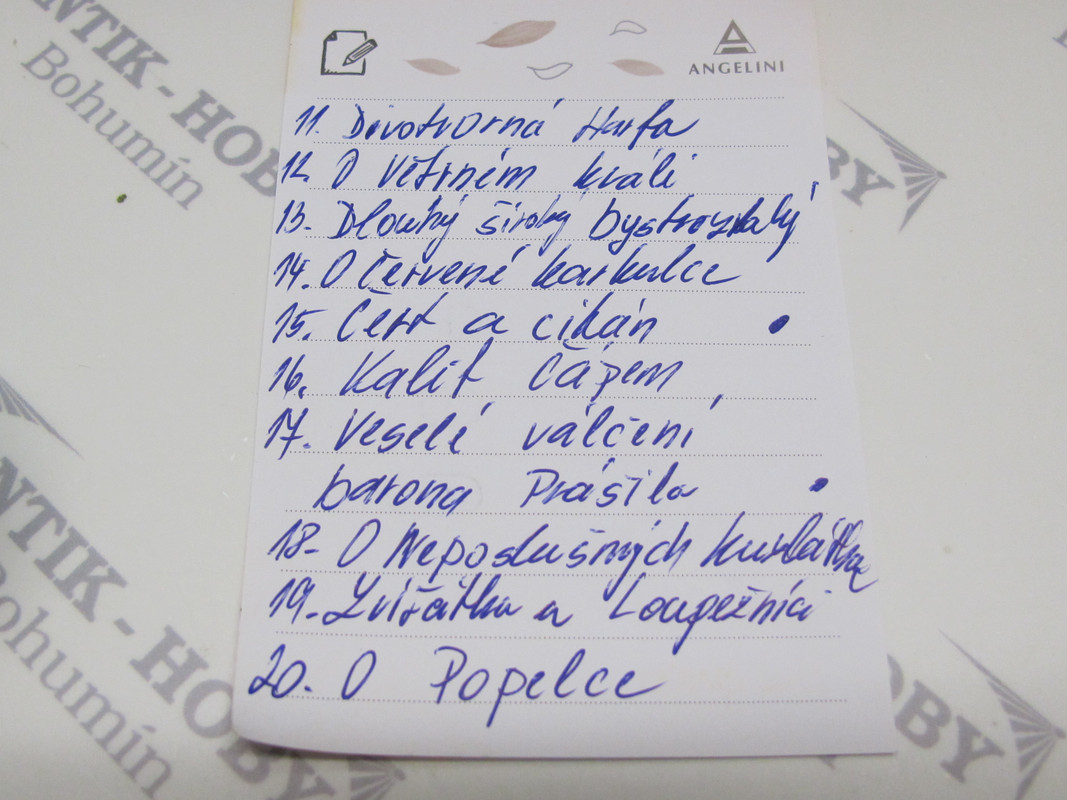 ANGELINI
11. Divotvorná Harfa
12. O Větrném králi
13. Dlouhý široký bystrozraký
14. O Červené karkulce
15. Čert a cikán
16. Kalif Čápem
17. Veselé válčení
barona Prášila
18. O Neposlušných kuzlátkách
19. Zvířátka a Loupežníci
20. O Popelce
ANTIK - HOBBY
Bohumín
ANTIK - HOBBY
Bohumín